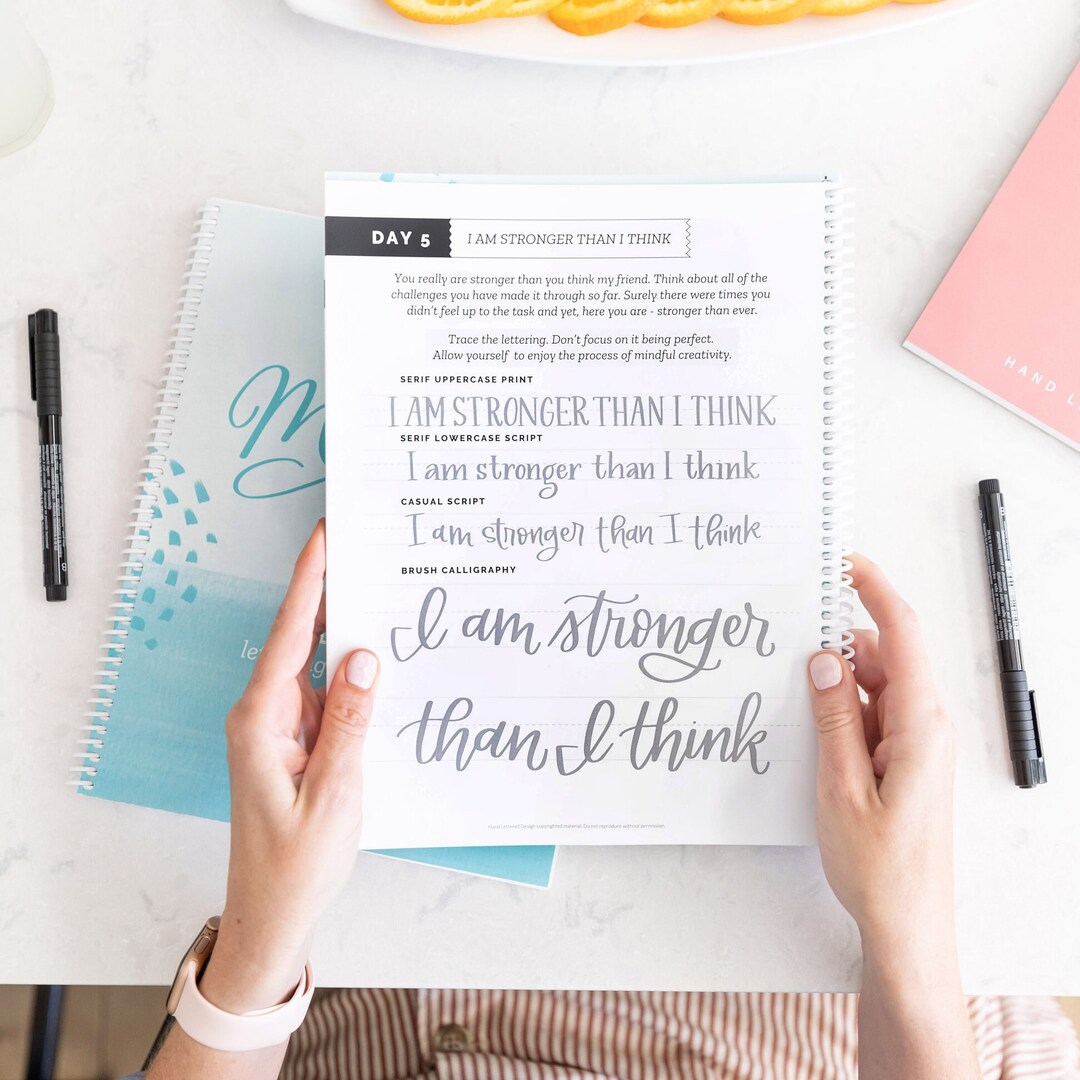 DAY 5
I AM STRONGER THAN I THINK
You really are stronger than you think my friend. Think about all of the
challenges you have made it through so far. Surely there were times you
didn't feel up to the task and yet, here you are - stronger than ever.
Trace the lettering. Don't focus on it being perfect.
Allow yourself to enjoy the process of mindful creativity.
SERIF UPPERCASE PRINT
I AM STRONGER THAN I THINK
SERIF LOWERCASE SCRIPT
I am stronger than I think
CASUAL SCRIPT
I am stronger than I think
BRUSH CALLIGRAPHY
I am stronger
than I think
HAND